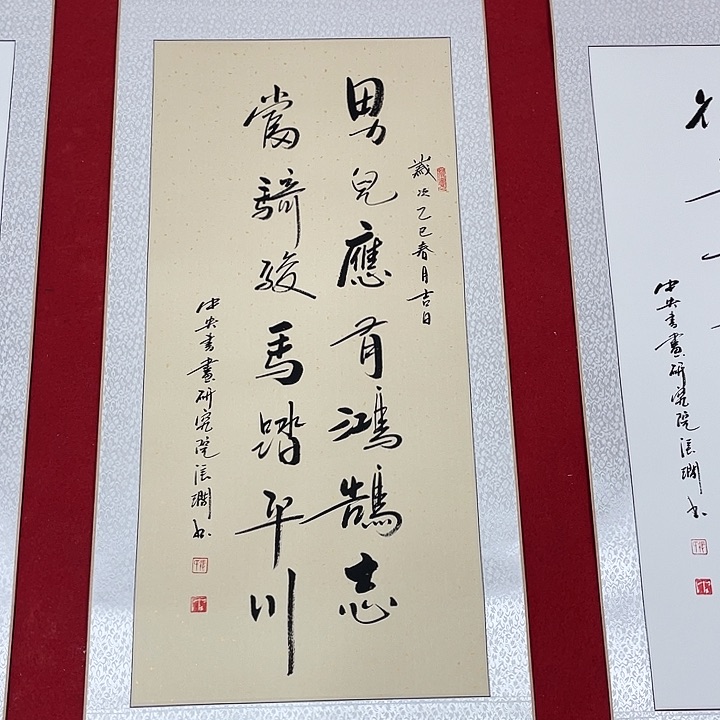 歲次乙巳春月吉日
男兒應有鴻鵠志
當騎駿馬踏平川
中央書畫研究院張瓓書
中央書畫研究院張瓓书